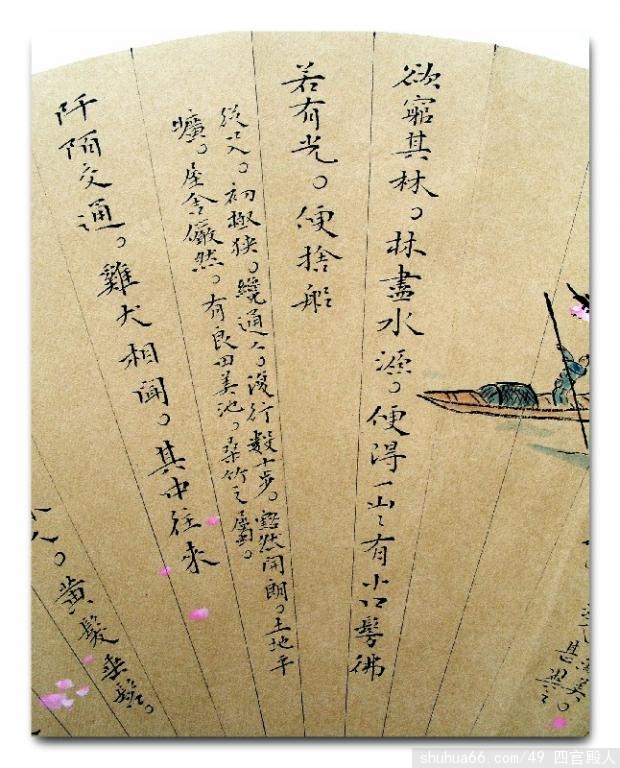 美。
甚異之
欲窮其林。林盡水源。便得一山〻有小口髣彿
若有光。便捨船
從口入。初極狹。纔通人。復行數十步。豁然開朗。土地平
曠。屋舍儼然。有良田美池。桑竹之屬。
阡陌交通。雞犬相聞。其中往來
人。黃髮垂髫。
shuhua66.com/49 四官殿人